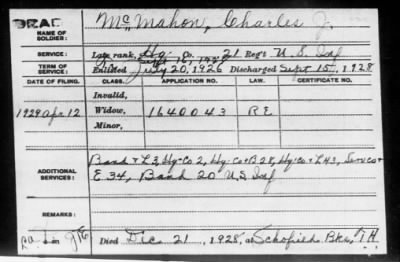 DRAD
NAME OF SOLDIER: McMahon, Charles J.
SERVICE: Late rank, Hq Co. 21 Reg't U.S. Inf
TERM OF SERVICE: Enlisted July 20, 1926 Discharged Sept 15, 1928
DATE OF FILING. CLASS. APPLICATION NO. LAW. CERTIFICATE NO.
Invalid,
1929 Apr. 12 Widow, 1640043 RE
Minor,
Band + L 3, Hq. Co 2, Hq. Co + B 28, Hq. Co +
ADDITIONAL SERVICES: E 34, Band 20 U.S. Inf
REMARKS:
Died Dec. 21, 1928, at Schofield Bks, T.H.